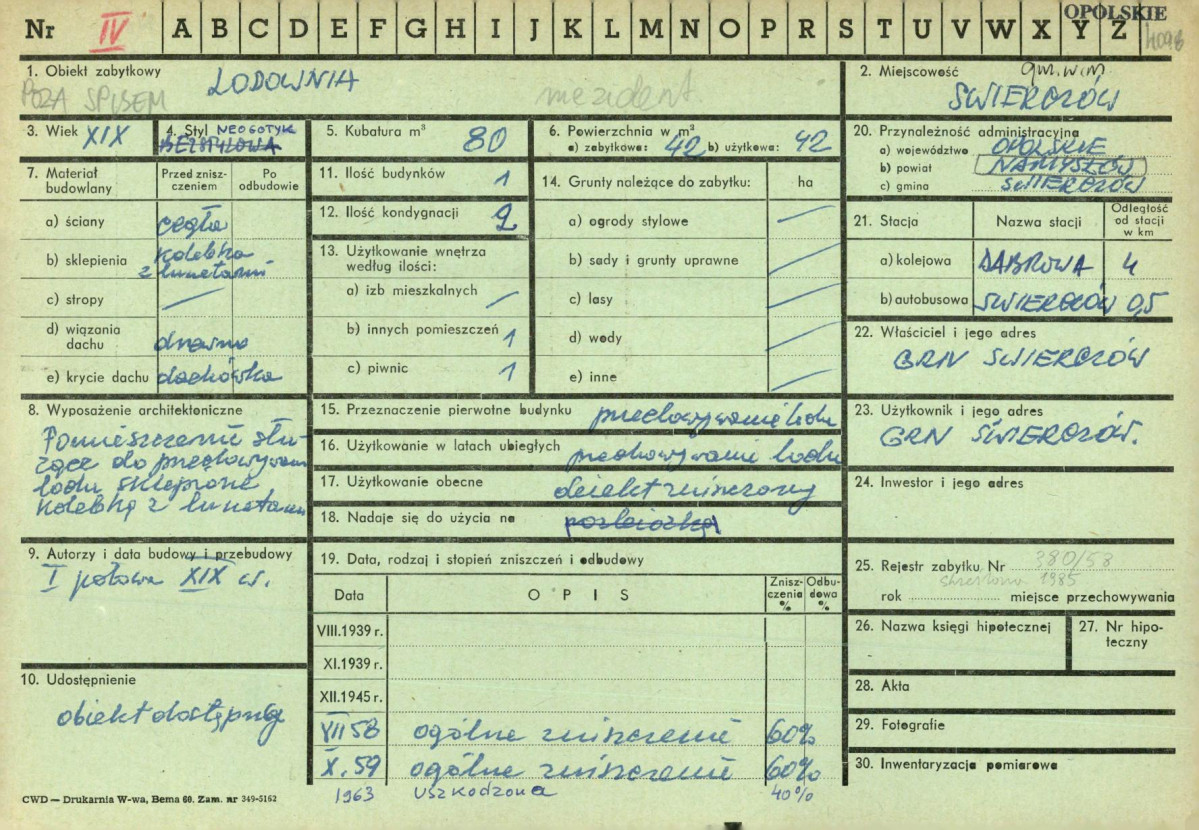 Nr IV A B C D E F G H I J K L M N O P R S T U V W X Y Z OPOLSKIE
1. Obiekt zabytkowy LODOWNIA
POZA SPISEM
2. Miejscowość gm. w m.
ŚWIERCZÓW
3. Wiek XIX
4. Styl NEOGOTYK
BEZSTYLOWA
5. Kubatura m³ 80
6. Powierzchnia w m²
a) zabytkowa: 42 b) użytkowa: 42
20. Przynależność administracyjna
a) województwo OPOLSKIE
b) powiat NAMYSŁÓW
c) gmina ŚWIERCZÓW
7. Materiał budowlany
Przed zniszczeniem
Po odbudowie
a) ściany cegła
b) sklepienia kolebka
z lunetami
c) stropy —
d) wiązania dachu drewno
e) krycie dachu dachówka
11. Ilość budynków 1
12. Ilość kondygnacji 2
13. Użytkowanie wnętrza
według ilości:
a) izb mieszkalnych —
b) innych pomieszczeń 1
c) piwnic 1
14. Grunty należące do zabytku: ha
a) ogrody stylowe —
b) sady i grunty uprawne —
c) lasy —
d) wody —
e) inne —
21. Stacja
Nazwa stacji
Odległość od stacji w km
a) kolejowa DĄBROWA 4
b) autobusowa ŚWIERCZÓW 0,5
22. Właściciel i jego adres
GRN ŚWIERCZÓW
8. Wyposażenie architektoniczne
Pomieszczenie słu-
żące do przechowywania
lodu sklepione
kolebką z lunetami
15. Przeznaczenie pierwotne budynku przechowywanie lodu
16. Użytkowanie w latach ubiegłych przechowywanie lodu
17. Użytkowanie obecne obiekt zniszczony
18. Nadaje się do użycia na rozbiórkę
23. Użytkownik i jego adres
GRN ŚWIERCZÓW.
24. Inwestor i jego adres
9. Autorzy i data budowy i przebudowy
I połowa XIX w.
19. Data, rodzaj i stopień zniszczeń i odbudowy
Data
OPIS
Zniszczenia %
Odbudowa %
VIII.1939 r.
XI.1939 r.
XII.1945 r.
VII 58 ogólne zniszczenie 60%
X. 59 ogólne zniszczenie 60%
1963 uszkodzona 40%
25. Rejestr zabytku Nr 380/58
skreślono 1985
rok miejsce przechowywania
26. Nazwa księgi hipotecznej
27. Nr hipoteczny
10. Udostępnienie
obiekt dostępny
28. Akta
29. Fotografie
30. Inwentaryzacja pomiarowa
CWD — Drukarnia W-wa, Bema 60. Zam. nr 349-5162